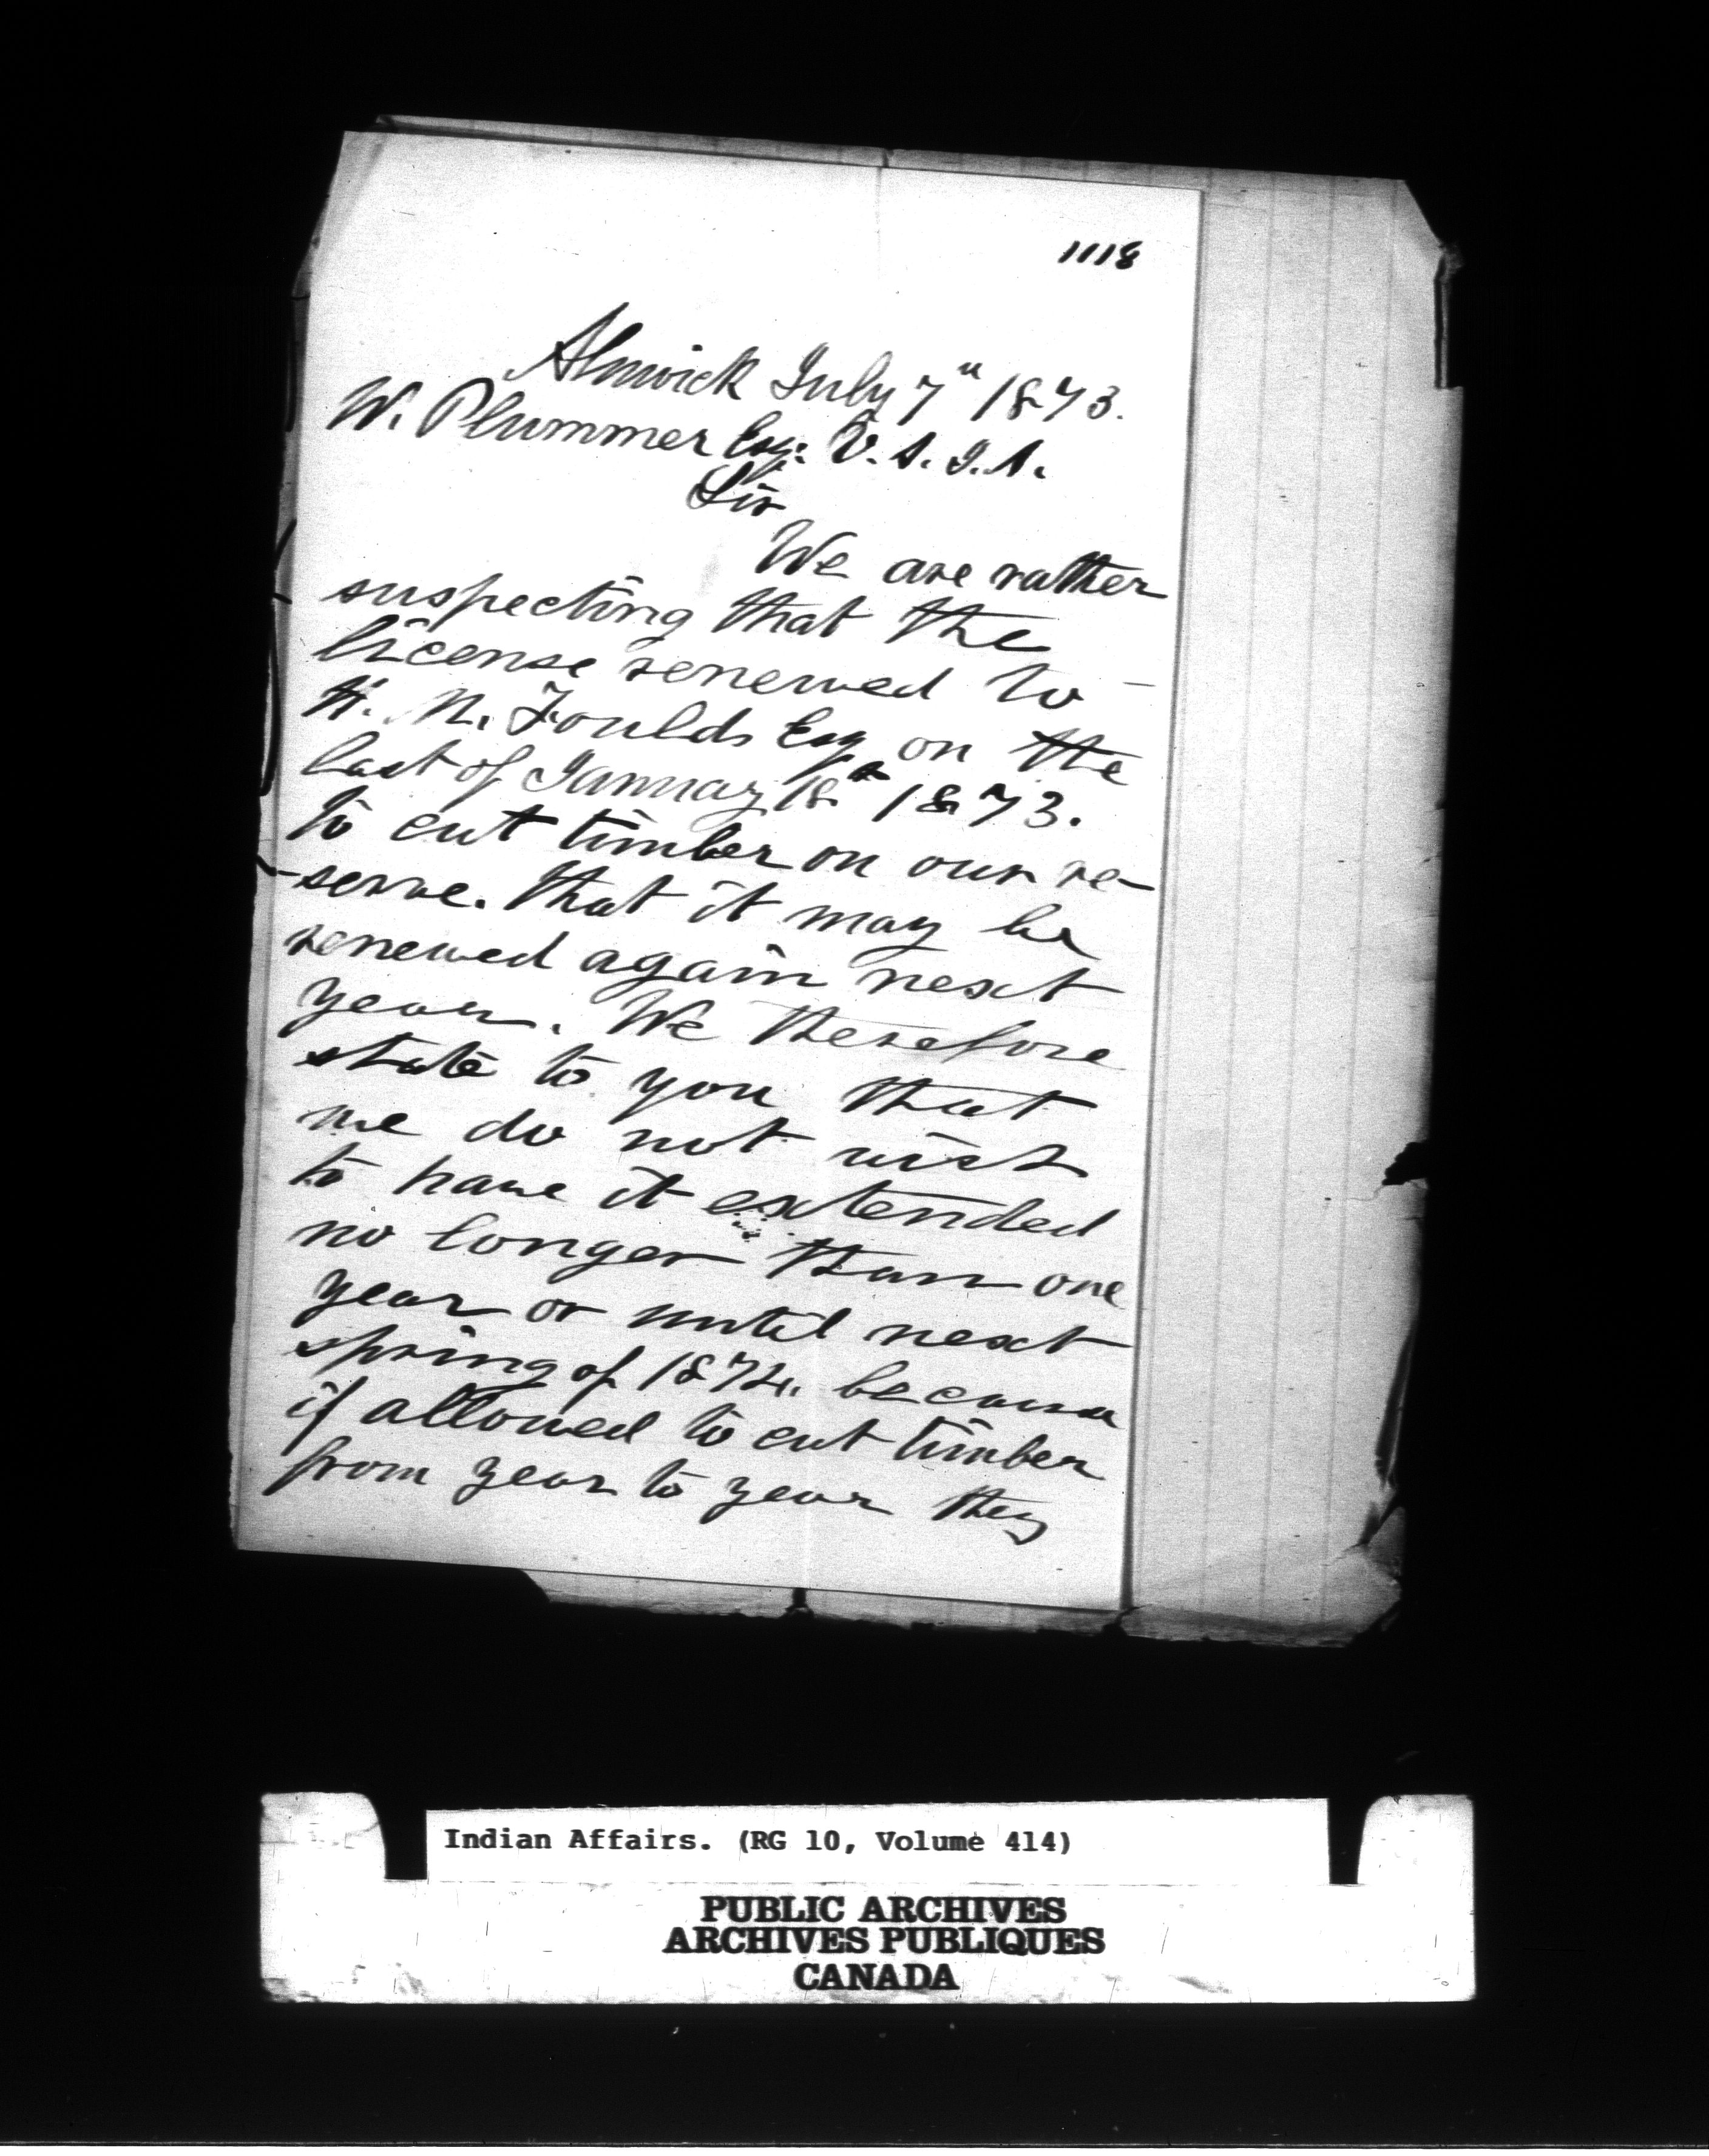 1118
Alnwick July 7" 1873.
W. Plummer Esq: V. S. I. A.
Sir
We are rather
suspecting that the
license renewed to
H. M. Foulds Esq on the
last of January 18th 1873.
to cut timber on our re-
-serve. that it may be
renewed again next
year. We therefore
state to you that
we do not wish
to have it extended
no longer than one
year or until next
spring of 1874. because
if allowed to cut timber
from year to year they
Indian Affairs. (RG 10, Volume 414)
PUBLIC ARCHIVES
ARCHIVES PUBLIQUES
CANADA